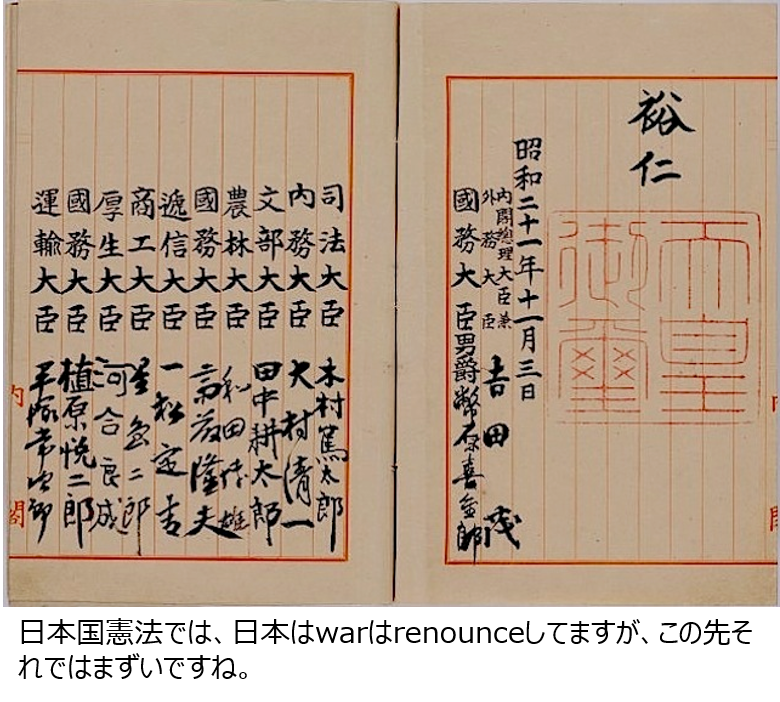 裕仁
天皇御璽
昭和二十一年十一月三日
内閣總理大臣兼
外務大臣 吉田茂
國務大臣男爵幣原喜重郎
司法大臣 木村篤太郎
内務大臣 大村清一
文部大臣 田中耕太郎
農林大臣 和田博雄
國務大臣 斎藤隆夫
遞信大臣 一松定吉
商工大臣 星島二郎
厚生大臣 河合良成
國務大臣 植原悦二郎
運輸大臣 平塚常次郎
内閣
日本国憲法では、日本はwarはrenounceしてますが、この先そ
れではまずいですね。